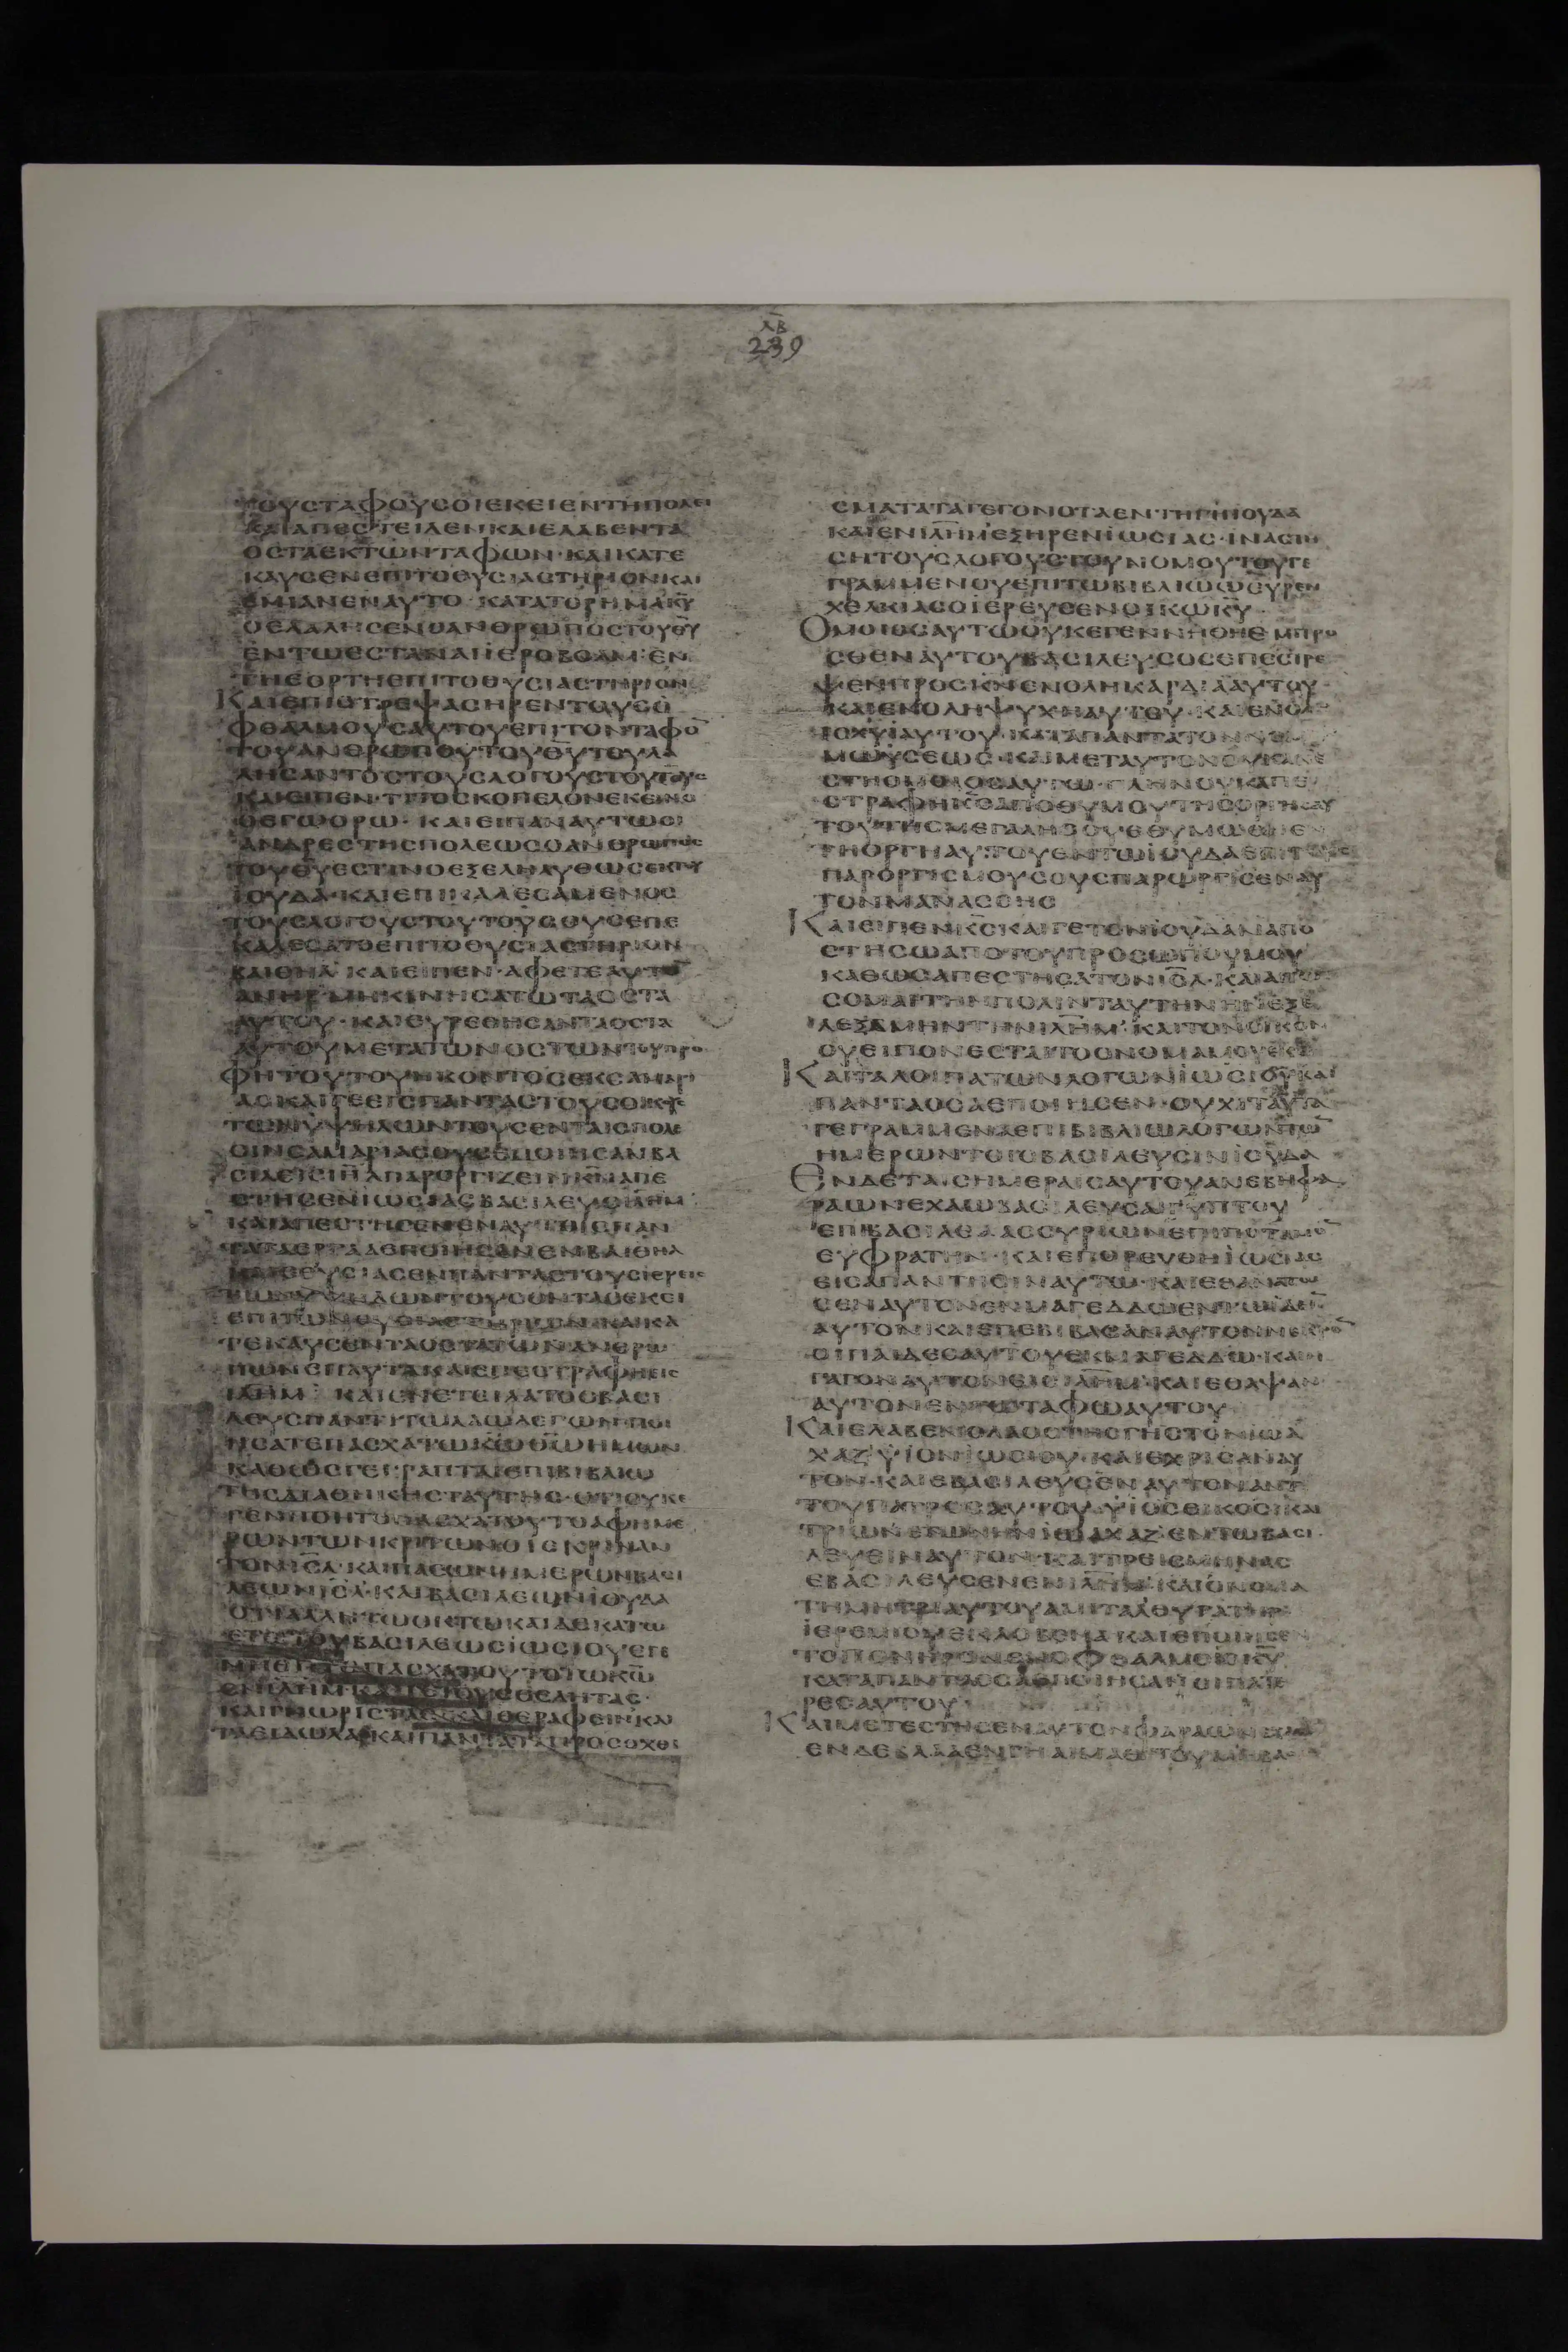 ΛΒ
239
ΤΟΥΣΤΑΦΟΥΣΟΙΕΚΕΙΕΝΤΗΠΟΛΕΙ
ΚΑΙΑΠΕΣΤΕΙΛΕΝΚΑΙΕΛΑΒΕΝΤΑ
ΟΣΤΑΕΚΤΩΝΤΑΦΩΝ·ΚΑΙΚΑΤΕ
ΚΑΥΣΕΝΕΠΙΤΟΘΥΣΙΑΣΤΗΡΙΟΝΚΑΙ
ΕΜΙΑΝΕΝΑΥΤΟ·ΚΑΤΑΤΟΡΗΜΑΚΥ
ΟΕΛΑΛΗΣΕΝΟΑΝΘΡΩΠΟΣΤΟΥΘΥ
ΕΝΤΩΕΣΤΑΝΑΙΙΕΡΟΒΟΑΜ·ΕΝ
ΤΗΕΟΡΤΗΕΠΙΤΟΘΥΣΙΑΣΤΗΡΙΟΝ
ΚΑΙΕΠΙΣΤΡΕΨΑΣΗΡΕΝΤΟΥΣΟ
ΦΘΑΛΜΟΥΣΑΥΤΟΥΕΠΙΤΟΝΤΑΦΟ
ΤΟΥΑΝΘΡΩΠΟΥΤΟΥΘΥΤΟΥΛΑ
ΛΗΣΑΝΤΟΣΤΟΥΣΛΟΓΟΥΣΤΟΥΤΟΥΣ
ΚΑΙΕΙΠΕΝ·ΤΙΤΟΣΚΟΠΕΛΟΝΕΚΕΙΝΟ
ΟΕΓΩΟΡΩ·ΚΑΙΕΙΠΑΝΑΥΤΩΟΙ
ΑΝΔΡΕΣΤΗΣΠΟΛΕΩΣΟΑΝΘΡΩΠΟΣ
ΤΟΥΘΥΕΣΤΙΝΟΕΞΕΛΗΛΥΘΩΣΕΚΤΟΥ
ΙΟΥΔΑ·ΚΑΙΕΠΙΚΑΛΕΣΑΜΕΝΟΣ
ΤΟΥΣΛΟΓΟΥΣΤΟΥΤΟΥΣΟΥΣΕΠΕ
ΚΑΛΕΣΑΤΟΕΠΙΤΟΘΥΣΙΑΣΤΗΡΙΟΝ
ΒΑΙΘΗΛ ΚΑΙΕΙΠΕΝ·ΑΦΕΤΕΑΥΤΟ
ΑΝΗΡΜΗΚΙΝΗΣΑΤΩΤΑΟΣΤΑ
ΑΥΤΟΥ·ΚΑΙΕΥΡΕΘΗΣΑΝΤΑΟΣΤΑ
ΑΥΤΟΥΜΕΤΑΤΩΝΟΣΤΩΝΤΟΥΠΡΟ
ΦΗΤΟΥΤΟΥΗΚΟΝΤΟΣΕΚΣΑΜΑΡΙ
ΑΣΚΑΙΓΕΕΙΣΠΑΝΤΑΣΤΟΥΣΟΙΚΟΥΣ
ΤΩΝΥΨΗΛΩΝΤΟΥΣΕΝΤΑΙΣΠΟΛΕ
ΣΙΝΣΑΜΑΡΙΑΣΟΥΣΕΠΟΙΗΣΑΝΒΑ
ΣΙΛΕΙΣΙΗΛΠΑΡΟΡΓΙΖΕΙΝΚΝΑΠΕ
ΣΤΗΣΕΝΙΩΣΙΑΣΒΑΣΙΛΕΥΣΙΛΗΜ
ΚΑΙΑΠΕΣΤΗΣΕΝΕΝΑΥΤΟΙΣΠΑΝ
ΤΑΤΑΕΡΓΑΑΕΠΟΙΗΣΕΝΕΝΒΑΙΘΗΛ
ΚΑΙΕΘΥΣΙΑΣΕΝΠΑΝΤΑΣΤΟΥΣΙΕΡΕΙΣ
ΕΠΙΤΩΝΘΥΣΙΑΣΤΗΡΙΩΝΚΑΙΚΑ
ΤΕΚΑΥΣΕΝΤΑΟΣΤΑΤΩΝΑΝΘΡΩ
ΠΩΝΕΠΑΥΤΑΚΑΙΕΠΕΣΤΡΑΦΗΕΙΣ
ΙΛΗΜ ΚΑΙΕΝΕΤΕΙΛΑΤΟΟΒΑΣΙ
ΛΕΥΣΠΑΝΤΙΤΩΛΑΩΛΕΓΩΝ·ΠΟΙ
ΗΣΑΤΕΠΑΣΧΑΤΩΚΩΘΩΗΜΩΝ
ΚΑΘΩΣΓΕΓΡΑΠΤΑΙΕΠΙΒΙΒΛΙΩ
ΤΗΣΔΙΑΘΗΚΗΣΤΑΥΤΗΣ·ΟΤΙΟΥΚΕ
ΓΕΝΗΘΗΤΟΠΑΣΧΑΤΟΥΤΟΑΦΗΜΕ
ΡΩΝΤΩΝΚΡΙΤΩΝΟΙΕΚΡΙΝΑΝ
ΤΟΝΙΣΛ·ΚΑΙΠΑΣΩΝΗΜΕΡΩΝΒΑΣΙ
ΛΕΩΝΙΣΛ·ΚΑΙΒΑΣΙΛΕΩΝΙΟΥΔΑ
ΟΤΙΑΛΛΗΤΩΟΚΤΩΚΑΙΔΕΚΑΤΩ
ΕΤΕΙΤΟΥΒΑΣΙΛΕΩΣΙΩΣΙΟΥΕΓΕ
ΝΗΘΗΤΟΠΑΣΧΑΤΟΥΤΟΤΩΚΩ
ΚΑΙΓΝΩΡΙΣΤΑΣΚΑΙΘΕΡΑΦΕΙΝ·ΚΑΙ
ΤΑΕΙΔΩΛΑ·ΚΑΙΠΑΝΤΑΤΑΠΡΟΣΟΧΘΙ
ΣΜΑΤΑΤΑΓΕΓΟΝΟΤΑΕΝ·ΤΗΓΗΙΟΥΔΑ
ΚΑΙΕΝΙΛΗΜΕΞΗΡΕΝΙΩΣΙΑΣ·ΙΝΑΣΤΗ
ΣΗΤΟΥΣΛΟΓΟΥΣΤΟΥΝΟΜΟΥΤΟΥΓΕ
ΓΡΑΜΜΕΝΟΥΕΠΙΤΩΒΙΒΛΙΩΩΕΥΡΕΝ
ΧΕΛΚΙΑΣΟΙΕΡΕΥΣΕΝΟΙΚΩΚΥ·
ΟΜΟΙΟΣΑΥΤΩΟΥΚΕΓΕΝΝΗΘΗΕΜΠΡΟ
ΣΘΕΝΑΥΤΟΥΒΑΣΙΛΕΥΣΟΣΕΠΕΣΤΡΕ
ΨΕΝΠΡΟΣΚΝΕΝΟΛΗΚΑΡΔΙΑΑΥΤΟΥ·
ΚΑΙΕΝΟΛΗΨΥΧΗΑΥΤΟΥ·ΚΑΙΕΝΟΛΗ
ΙΣΧΥΙΑΥΤΟΥ·ΚΑΤΑΠΑΝΤΑΤΟΝΝΟΜΟ
ΜΩΥΣΕΩΣ·ΚΑΙΜΕΤΑΥΤΟΝΟΥΚΑΝΕ
ΣΤΗΟΜΟΙΟΣΑΥΤΩ·ΠΛΗΝΟΥΚΑΠΕ
ΣΤΡΑΦΗΚΣΑΠΟΘΥΜΟΥΤΗΣΟΡΓΗΣΑΥ
ΤΟΥΤΗΣΜΕΓΑΛΗΣΟΥΕΘΥΜΩΘΗΕΝ
ΤΗΟΡΓΗΑΥΤΟΥΕΝΤΩΙΟΥΔΑΕΠΙΤΟΥΣ
ΠΑΡΟΡΓΙΣΜΟΥΣΟΥΣΠΑΡΩΡΓΙΣΕΝΑΥ
ΤΟΝΜΑΝΑΣΣΗΣ
ΚΑΙΕΙΠΕΝΚΣΚΑΙΓΕΤΟΝΙΟΥΔΑΝΑΠΟ
ΣΤΗΣΩΑΠΟΤΟΥΠΡΟΣΩΠΟΥΜΟΥ
ΚΑΘΩΣΑΠΕΣΤΗΣΑΤΟΝΙΣΛ·ΚΑΙΑΠΩ
ΣΟΜΑΙΤΗΝΠΟΛΙΝΤΑΥΤΗΝΗΝΕΞΕ
ΛΕΞΑΜΗΝΤΗΝΙΛΗΜ·ΚΑΙΤΟΝΟΙΚΟΝ
ΟΥΕΙΠΟΝΕΣΤΑΙΤΟΟΝΟΜΑΜΟΥΕΚΕΙ
ΚΑΙΤΑΛΟΙΠΑΤΩΝΛΟΓΩΝΙΩΣΙΟΥΚΑΙ
ΠΑΝΤΑΟΣΑΕΠΟΙΗΣΕΝ·ΟΥΧΙΤΑΥΤΑ
ΓΕΓΡΑΜΜΕΝΑΕΠΙΒΙΒΛΙΩΛΟΓΩΝΤΩ
ΗΜΕΡΩΝΤΟΙΣΒΑΣΙΛΕΥΣΙΝΙΟΥΔΑ
ΕΝΔΕΤΑΙΣΗΜΕΡΑΙΣΑΥΤΟΥΑΝΕΒΗΦΑ
ΡΑΩΝΕΧΑΩΒΑΣΙΛΕΥΣΑΙΓΥΠΤΟΥ
ΕΠΙΒΑΣΙΛΕΑΑΣΣΥΡΙΩΝΕΠΙΠΟΤΑΜΟ
ΕΥΦΡΑΤΗΝ·ΚΑΙΕΠΟΡΕΥΘΗΙΩΣΙΑΣ
ΕΙΣΑΠΑΝΤΗΣΙΝΑΥΤΩ·ΚΑΙΕΘΑΝΑΤΩ
ΣΕΝΑΥΤΟΝΕΝΜΑΓΕΔΔΩΕΝΤΩΙΔΕΙ
ΑΥΤΟΝΚΑΙΕΠΕΒΙΒΑΣΑΝΑΥΤΟΝΝΕΚΡΟ
ΟΙΠΑΙΔΕΣΑΥΤΟΥΕΚΜΑΓΕΔΔΩ·ΚΑΙΗ
ΓΑΓΟΝΑΥΤΟΝΕΙΣΙΛΗΜ·ΚΑΙΕΘΑΨΑΝ
ΑΥΤΟΝΕΝΤΩΤΑΦΩΑΥΤΟΥ
ΚΑΙΕΛΑΒΕΝΟΛΑΟΣΤΗΣΓΗΣΤΟΝΙΩΑ
ΧΑΖΥΙΟΝΙΩΣΙΟΥ·ΚΑΙΕΧΡΙΣΑΝΑΥ
ΤΟΝ·ΚΑΙΕΒΑΣΙΛΕΥΣΕΝΑΥΤΟΝΑΝΤΙ
ΤΟΥΠΑΤΡΟΣΑΥΤΟΥ·ΥΙΟΣΕΙΚΟΣΙΚΑΙ
ΤΡΙΩΝΕΤΩΝΗΝΙΩΑΧΑΖΕΝΤΩΒΑΣΙ
ΛΕΥΕΙΝΑΥΤΟΝ·ΚΑΙΤΡΕΙΣΜΗΝΑΣ
ΕΒΑΣΙΛΕΥΣΕΝΕΝΙΛΗΜ·ΚΑΙΟΝΟΜΑ
ΤΗΜΗΤΡΙΑΥΤΟΥΑΜΙΤΑΛΘΥΓΑΤΗΡ
ΙΕΡΕΜΙΟΥΕΚΛΟΒΕΝΑ·ΚΑΙΕΠΟΙΗΣΕΝ
ΤΟΠΟΝΗΡΟΝΕΝΟΦΘΑΛΜΟΙΣΚΥ
ΚΑΤΑΠΑΝΤΑΟΣΑΕΠΟΙΗΣΑΝΟΙΠΑΤΕ
ΡΕΣΑΥΤΟΥ
ΚΑΙΜΕΤΕΣΤΗΣΕΝΑΥΤΟΝΦΑΡΑΩΝΕΧΑΩ
ΕΝΔΕΒΛΑΑΕΝΓΗΑΙΜΑΘΤΟΥΜΗΒΑ